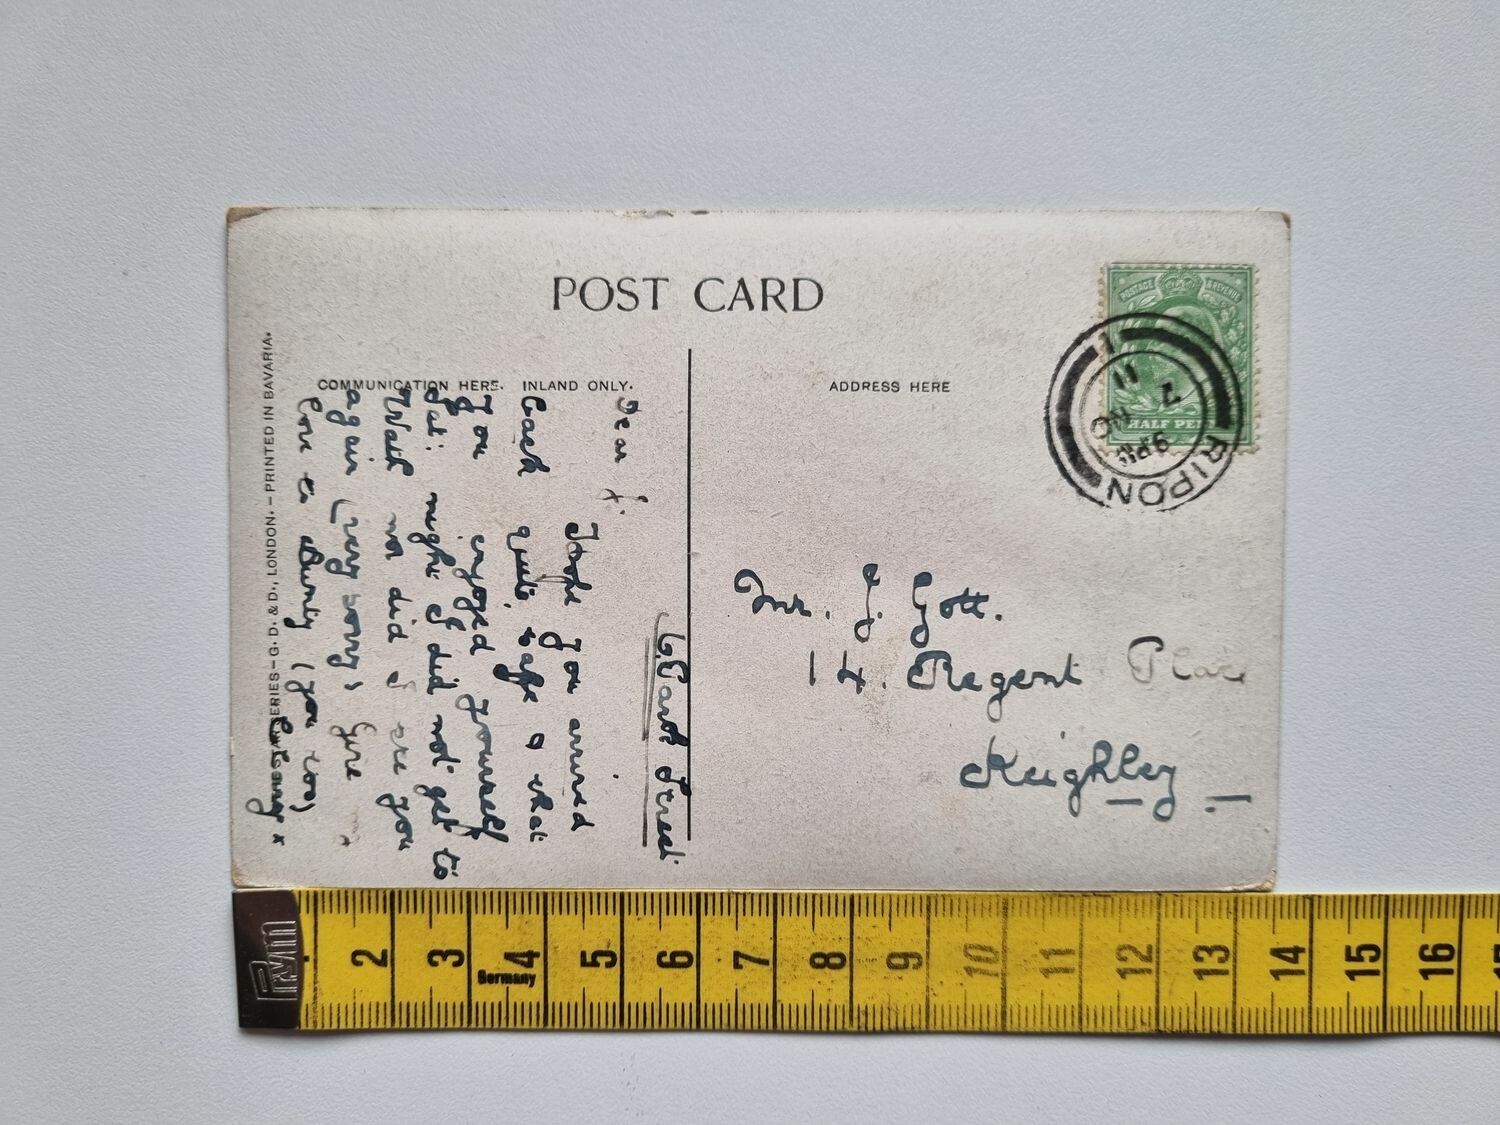 POST CARD
COMMUNICATION HERE. INLAND ONLY.
ADDRESS HERE
STAR SERIES – G. D. & D., LONDON. – PRINTED IN BAVARIA.
POSTAGE & REVENUE
HALF PEN
RIPON
9 PM
7 NO
11
Mr. J. Gott.
14. Regent Place
Keighley
6 Park Street
Dear J.
I hope you arrived
back quite safe & that
you enjoyed yourself
Sat: night I did not get to
Wait nor did I see you
again (very sorry) Give
love to Aunty (you too)
Prym
2 3 4 5 6 7 8 9 10 11 12 13 14 15 16
Germany